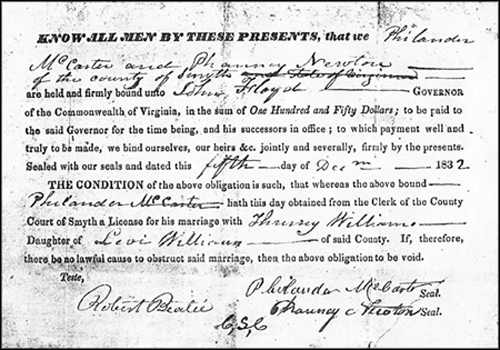 KNOW ALL MEN BY THESE PRESENTS, that we Philander
McCarter and Phauney Newton
of the county of Smyth and State of Virginia
are held and firmly bound unto John Floyd GOVERNOR
of the Commonwealth of Virginia, in the sum of One Hundred and Fifty Dollars; to be paid to
the said Governor for the time being, and his successors in office; to which payment well and
truly to be made, we bind ourselves, our heirs &c. jointly and severally, firmly by the presents.
Sealed with our seals and dated this fifth day of Decm 1832
THE CONDITION of the above obligation is such, that whereas the above bound
Philander McCarter hath this day obtained from the Clerk of the County
Court of Smyth a License for his marriage with Thursey Williams
Daughter of Levi Williams of said County. If, therefore,
there be no lawful cause to obstruct said marriage, then the above obligation to be void.
Teste,
Philander McCarter Seal.
Robert Beatie
Chauney Newton Seal.
C,S,C